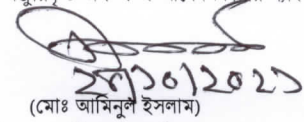 ২৪/১০/২০২১
(মোঃ আমিনুল ইসলাম)